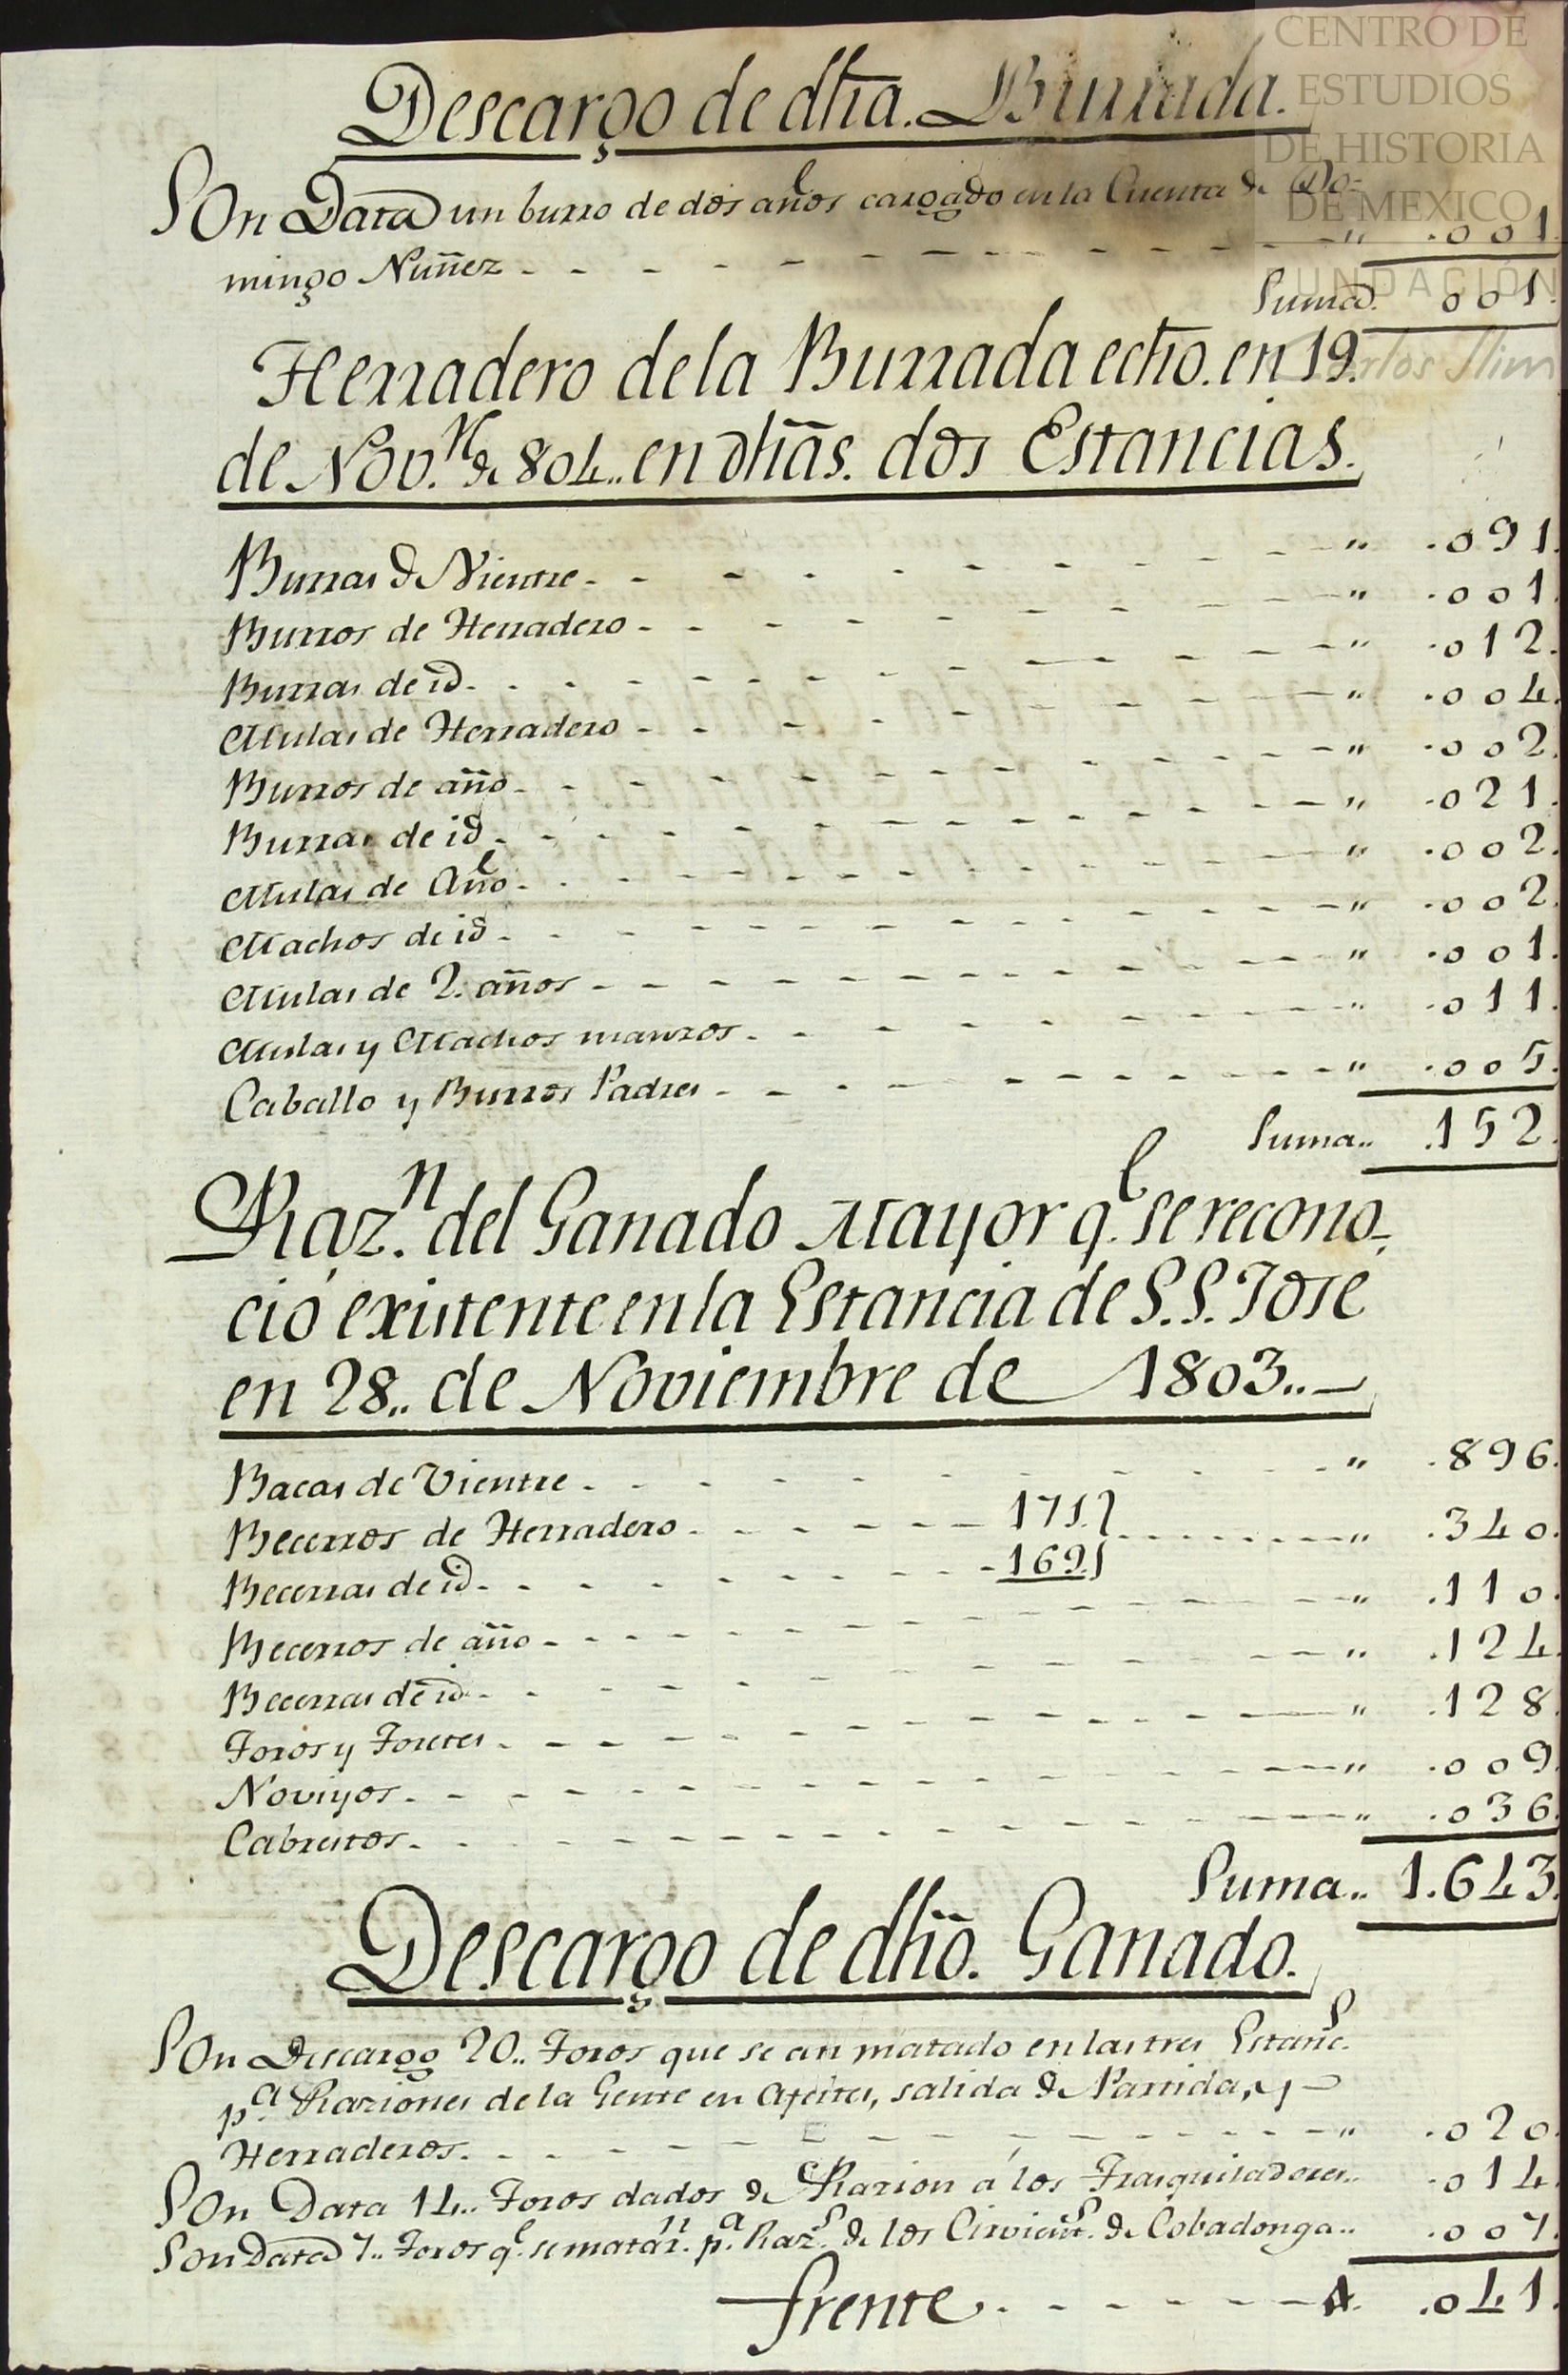 CENTRO DE
ESTUDIOS
DE HISTORIA
DE MEXICO
FUNDACIÓN
Carlos Slim
Descargo de dha. Burrada.
Son Data un burro de dos años cargado en la Cuenta de Do-
mingo Nuñez - - - - - - - - - - - - " .001.
Suma. 001.
Herradero de la Burrada echo. en 19.
de Nov.re de 804.. en dhas. dos Estancias.
Burras de Vientre - - - - - - - - - - " .091.
Burros de Herradero - - - - - - - - - - " .001.
Burras de id. - - - - - - - - - - " .012.
Mulas de Herradero - - - - - - - - - - " .004.
Burros de año - - - - - - - - - - " .002.
Burras de id - - - - - - - - - - " .021.
Mulas de Año - - - - - - - - - - " .002.
Machos de id - - - - - - - - - - " .002.
Mulas de 2. años - - - - - - - - - - " .001.
Mulas y Machos manzos - - - - - - - - " .011.
Caballo y Burros Padres - - - - - - - - " .005.
Suma.. .152.
Raz.n del Ganado Mayor q.e se recono-
ció existente en la Estancia de S.S. Jose
en 28.. de Noviembre de 1803..
Bacas de Vientre - - - - - - - - - - " .896.
Becerros de Herradero - - - - - - 171.} - - - - " .340.
Becerras de id - - - - - - - 169.}
Becerros de año - - - - - - - - - - " .110.
Becerras de id - - - - - - - - - - " .124.
Toros y Toretes - - - - - - - - - - " .128.
Noviyos - - - - - - - - - - " .009.
Cabrestos - - - - - - - - - - " .036.
Suma.. 1.643.
Descargo de dho. Ganado.
Son Descargo 20.. Toros que se an matado en las tres Estanc.s
p.a Raziones de la Gente en Afeites, salida de Partida, y
Herraderos. - - - - - - - - - - " .020.
Son Data 14.. Toros dados de Razion á los Trasquiladores.. .014.
Son Data 7.. Toros q.e se matar.n p.a Raz.s de los Cirvient.s de Cobadonga.. .007.
frente - - - - - - - A. .041.